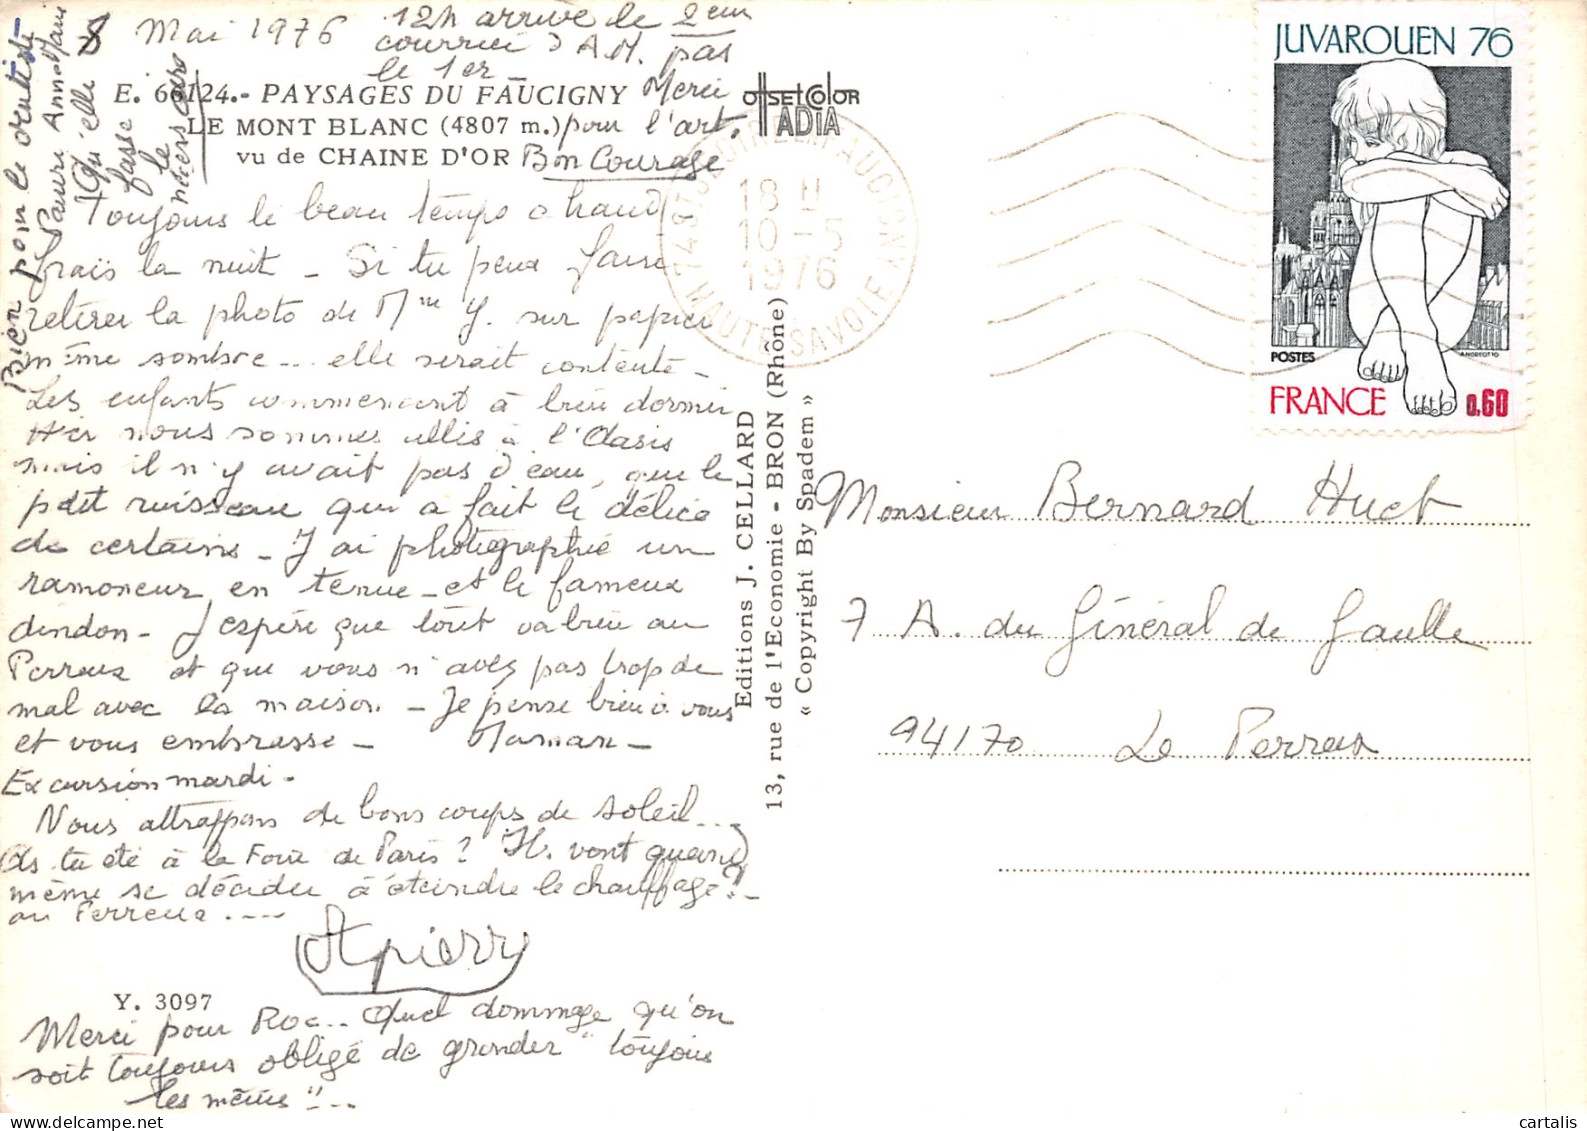 8 Mai 1976
12h arrive le 2em
courrier d'A.M. pas
le 1er
Merci
pour l'art.
Bon Courage
E. 66124.- PAYSAGES DU FAUCIGNY
LE MONT BLANC (4807 m.)
vu de CHAINE D'OR
offsetcolor
ADIA
Bien pour le dentiste
Pauvre Anne Marie
Qu'elle
fasse
le
nécessaire
Toujours le beau temps chaud
frais la nuit - Si tu peux faire
retirer la photo de Mme Y. sur papier
même sombre... elle serait contente -
Les enfants commencent à bien dormir
Hier nous sommes allés à l'Oasis
mais il n'y avait pas d'eau, que le
petit ruisseau qui a fait le délice
de certains - J'ai photographié un
ramoneur en tenue - et le fameux
dindon - J'espère que tout va bien au
Perreux et que vous n'avez pas trop de
mal avec la maison - Je pense bien à vous
et vous embrasse - Maman -
Excursion mardi -
Nous attrapons de bons coups de soleil...
As tu été à la Foire de Paris ? H. vont quand
même se décider à éteindre le chauffage ? -
au Perreux ....
Y. 3097
Merci pour Roc... Quel dommage qu'on
soit toujours obligé de gronder "toujours
les mêmes"...
Editions J. CELLARD
13, rue de l'Economie - BRON (Rhône)
« Copyright By Spadem »
HAUTE-SAVOIE
18 H
10-5
1976
JUVAROUEN 76
POSTES
ANDREOTTO
FRANCE
0.60
Monsieur Bernard Huet
7 A. du Général de Gaulle
94170 Le Perreux
cartalis
delcampe.net